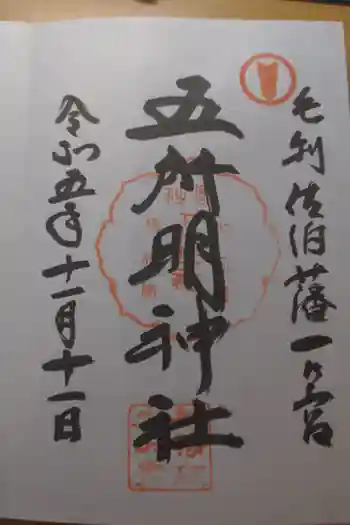 毛利佐伯藩一ノ宮
五所明神社
令和五年十一月十一日